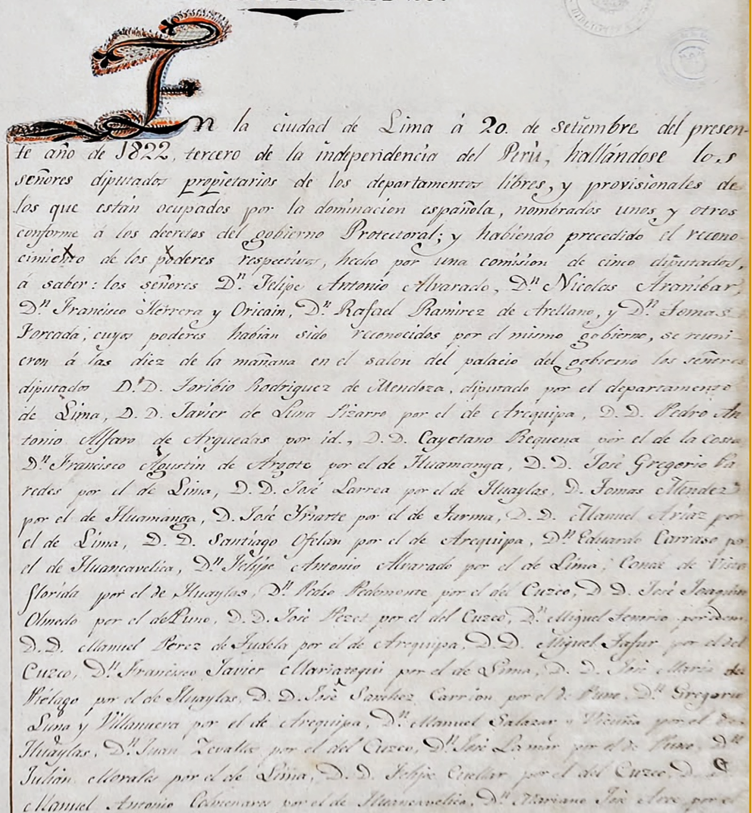 En la ciudad de Lima á 20. de Setiembre del presen-
te año de 1822, tercero de la independencia del Perú, hallándose los
señores diputados propietarios de los departamentos libres, y provisionales de
los que están ocupados por la dominacion española, nombrados unos, y otros
conforme á los decretos del gobierno Protectoral; y habiendo precedido el recono-
cimiento de los poderes respectivos, hecho por una comision de cinco diputados,
á saber: los señores Dn. Felipe Antonio Alvarado, Dn. Nicolas Aranibar,
Dn. Francisco Herrera y Oricain, Dn. Rafael Ramirez de Arellano, y Dn. Tomas
Forcada; cuyos poderes habian sido reconocidos por el mismo gobierno, se reuni-
eron á las diez de la mañana en el salon del palacio del gobierno los señores
diputados D. D. Toribio Rodriguez de Mendoza, diputado por el departamento
de Lima, D. D. Javier de Luna Pizarro por el de Arequipa, D. D. Pedro An
tonio Alfaro de Arguedas por id., D. D. Cayetano Requena por el de la costa
Dn. Francisco Agustin de Argote por el de Huamanga, D. D. José Gregorio Pa
redes por el de Lima, D. D. José Larrea por el de Huaylas, D. Tomas Mendez
por el de Huamanga, D. José Yriarte por el de Tarma, D. D. Manuel Ariaz por
el de Lima, D. D. Santiago Ofelan por el de Arequipa, Dn. Eduardo Carraso por
el de Huancavelica, Dn. Felipe Antonio Alvarado por el de Lima, Conde de Vista
florida por el de Huaylas, Dn. Pedro Pedemonte por el del Cuzco, D. D. José Joaquin
Olmedo por el de Puno, D. D. José Pezet por el del Cuzco, Dn. Miguel Tenorio por idem,
D. D. Manuel Perez de Tudela por el de Arequipa, D. D. Miguel Tafur por el del
Cuzco, Dn. Francisco Javier Mariategui por el de Lima, D. D. José Maria del
Piélago por el de Huaylas, D. D. José Sanchez Carrion por el de Puno, Dn. Gregorio
Luna y Villanueva por el de Arequipa, Dn. Manuel Salazar y Vicuña por el de
Huaylas, Dn. Juan Zevallos por el del Cuzco, Dn. José Lamar por el de Puno, Dn.
Julian Morales por el de Lima, D. D. Felipe Cuellar por el del Cuzco, D. D
Manuel Antonio Colmenares por el de Huancavelica, Dn. Mariano José Arce por el